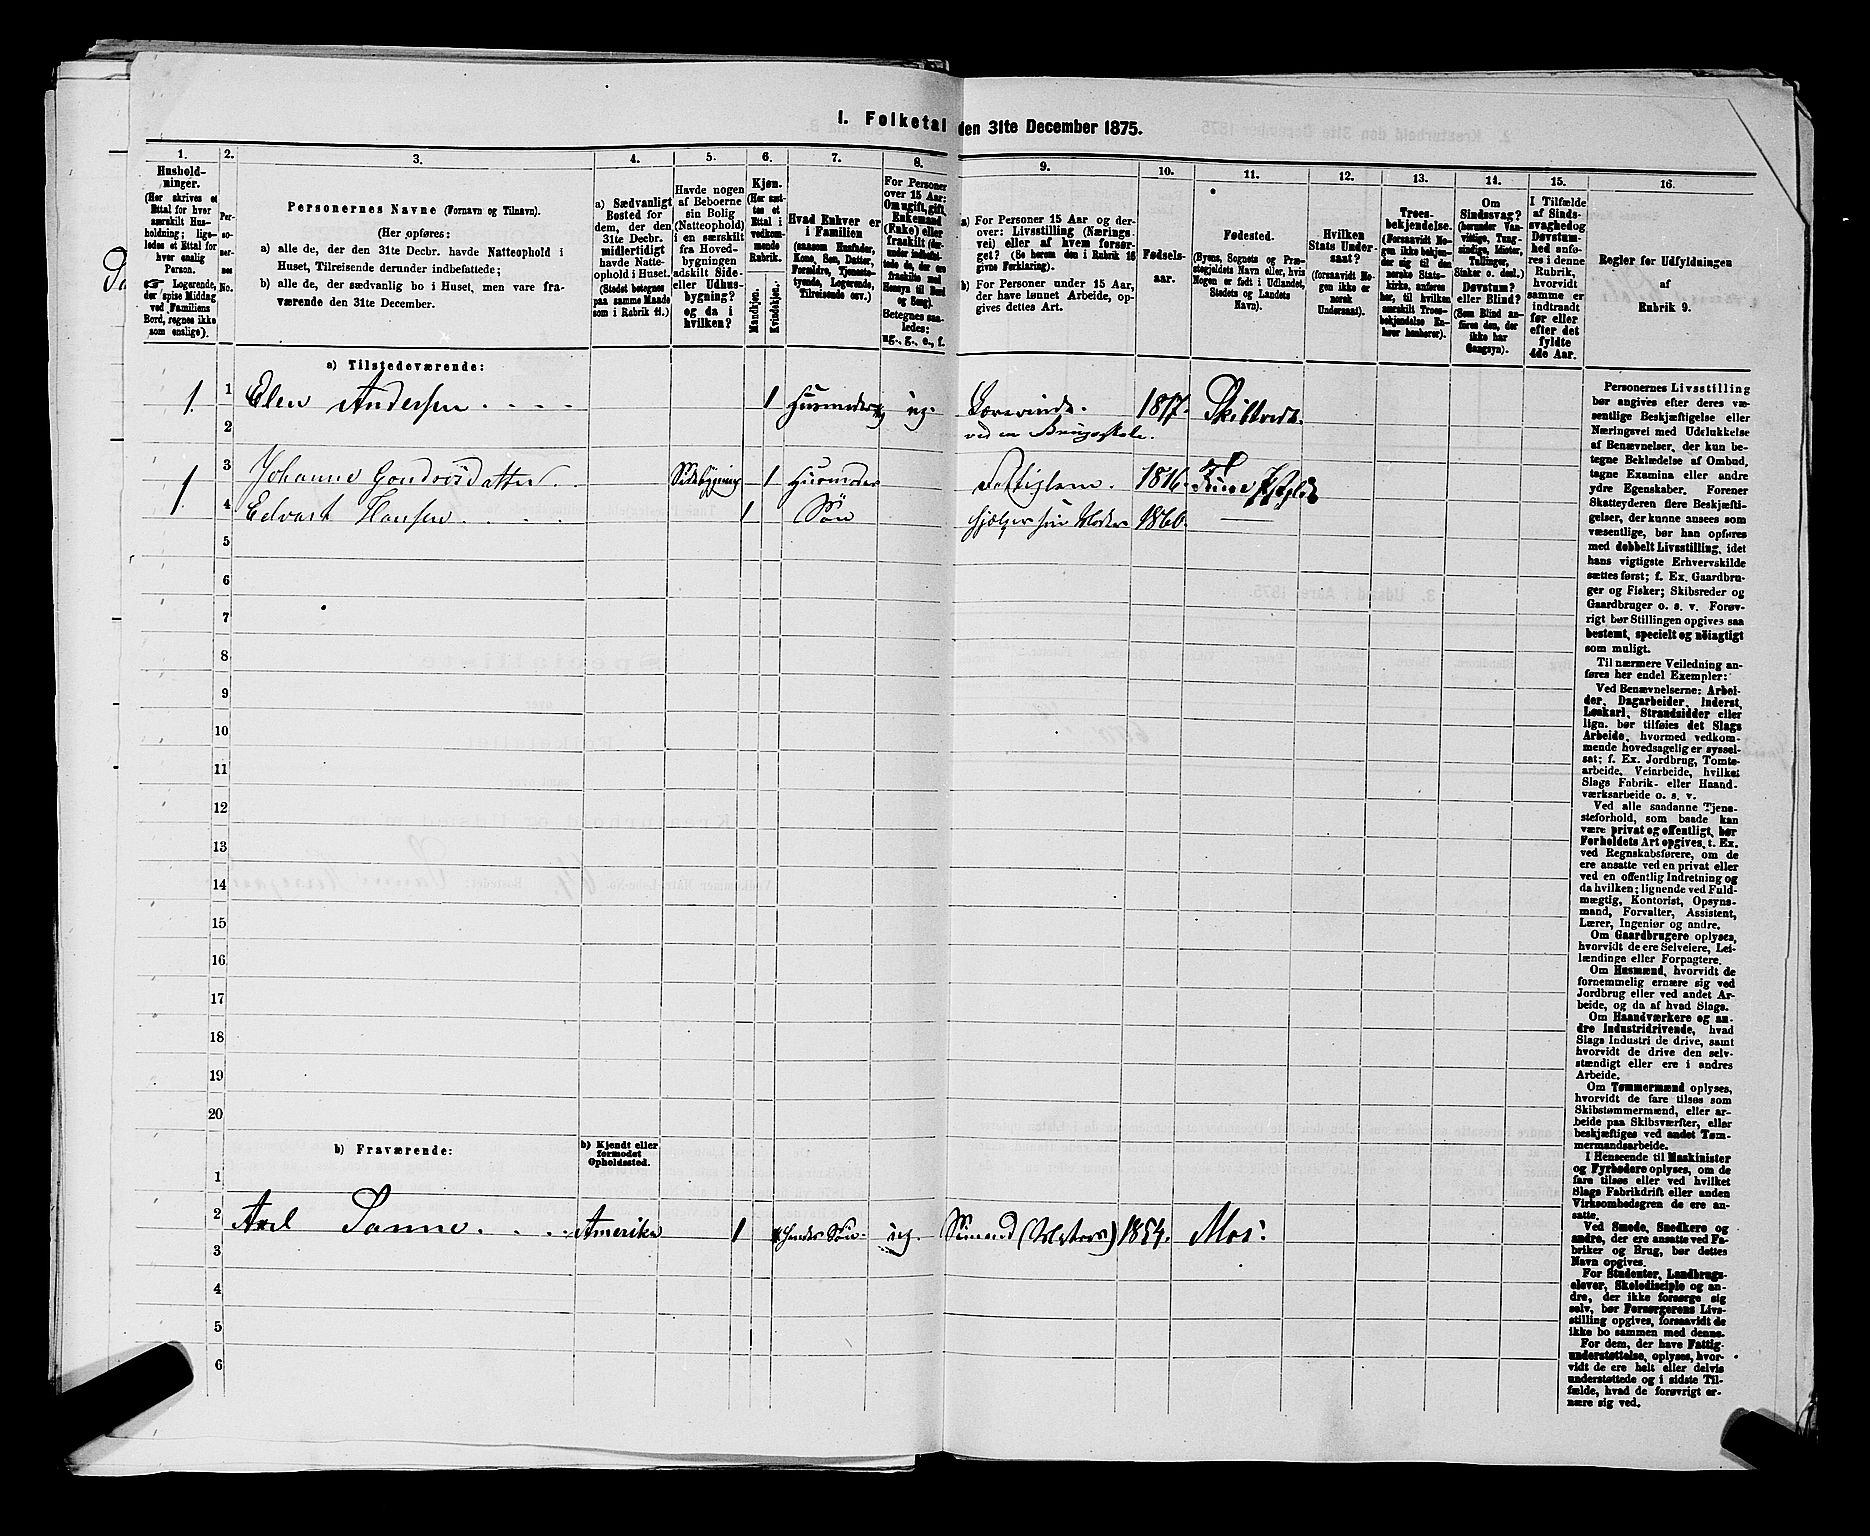 1. Folketal den 31te December 1875.
1.
Hushold-
ninger.
(Her skrives et
Ettal for hver
særskilt Hus-
holdning; lige-
ledes et Ettal for
hver enslig
Person.
Logerende,
der spise Middag
ved Familiens
Bord, regnes ikke
som enslige).
2.
Per-
so-
ner-
nes
No.
3.
Personernes Navne (Fornavn og Tilnavn).
(Her opføres:
a) alle de, der den 31te Decbr. havde Natteophold i
Huset, Tilreisende derunder indbefattede;
b) alle de, der sædvanlig bo i Huset, men vare fra-
værende den 31te December.
4.
a) Sædvanligt
Bosted for
dem, der den
31te Decbr.
midlertidigt
havde Natte-
ophold i Huset.
(Stedet betegnes
paa samme Maade
som i Rubrik 11.)
5.
Havde nogen
af Beboerne
sin Bolig
(Natteophold)
i en særskilt
fra Hoved-
bygningen
adskilt Side-
eller Udhus-
bygning?
og da i
hvilken?
6.
Kjøn.
(Her sæt-
tes et
Ettal i
vedkom-
mende
Rubrik.
Mandkjøn.
Kvindekjøn.
7.
Hvad Enhver er
i Familien
(saasom Husfader,
Kone, Søn, Datter,
Forældre, Tjeneste-
tyende, Logerende,
Tilreisende osv.)
8.
For Personer
over 15 Aar:
Om ugift, gift,
Enkemand
(Enke) eller
fraskilt (der-
under indbefat-
tede de, der ere
fraskilte med
Hensyn til Bord
og Seng).
Betegnes saa-
ledes:
ug., g., e., f.
9.
a) For Personer 15 Aar og der-
over: Livsstilling (Nærings-
vei) eller af hvem forsør-
get? (Se herom den i Rubrik 16
givne Forklaring).
b) For Personer under 15 Aar,
der have lønnet Arbeide, op-
gives dettes Art.
10.
Fødsels-
aar.
11.
Fødested.
(Byens, Sognets og Præ-
stegjeldets Navn eller, hvis
Nogen er født i Udlandet,
Stedets og Landets
Navn).
12.
Hvilken
Stats Under-
saat?
(forsaavidt No-
gen ikke er
norsk
Undersaat).
13.
Troes-
bekjendelse.
(Forsaavidt No-
gen ikke bekjen-
der sig til den
norske Stats-
kirke, anføres
her, til hvilken
særskilt Troes-
bekjendelse En-
hver henhører).
14.
Om
Sindssvag?
(herunder Van-
vittige, Tung-
sindige, Idioter,
Tullinger,
Sinker o. desl.)
Døvstum?
eller Blind?
(Som Blind an-
føres den, der
ikke har
Gangsyn).
15.
I Tilfælde
af Sinds-
svaghed og
Døvstum-
hed anfø-
res i denne
Rubrik,
hvorvidt
samme er
indtraadt
før eller
efter det
fyldte
4de Aar.
16.
Regler for Udfyldningen
af
Rubrik 9.
a) Tilstedeværende:
1. 1 Elen Andersen . . . . 1 Husmoder ug. Lærerinde. 1817. Skibtvedt.
2 ved en Brugsskole.
1 3 Johanne Gondersdatter Sidebygning 1 Husmoder Fattiglem. 1816.
4 Edvart Hansen . . . . 1 Søn hjælper sin Moder 1860. ——
5
6
7
8
9
10
11
12
13
14
15
16
17
18
19
20
b) Fraværende:
b) Kjendt eller
formodet
Opholdssted.
1
2 Axel Sanne . . . . Amerika 1 Hendes Søn. ug. Sømand (Matros) 1854. Mos.
3
4
5
6
Personernes Livsstilling
bør angives efter deres væ-
sentlige Beskjæftigelse eller
Næringsvei med Udelukkelse
af Benævnelser, der kun be-
tegne Beklædelse af Ombud,
tagne Examina eller andre
ydre Egenskaber. Forener
Skatteyderen flere Beskjæfti-
gelser, der kunne ansees som
væsentlige, bør han opføres
med dobbelt Livsstilling, idet
hans vigtigste Erhvervskilde
sættes først; f. Ex. Gaardbru-
ger og Fisker; Skibsreder og
Gaardbruger o. s. v. Forøv-
rigt bør Stillingen opgives saa
bestemt, specielt og nøiagtigt
som muligt.
Til nærmere Veiledning an-
føres her endel Exempler:
Ved Benævnelserne: Arbei-
der, Dagarbeider, Inderst,
Løskarl, Strandsidder eller
lign. bør tilføies det Slags
Arbeide, hvormed vedkom-
mende hovedsagelig er syssel-
sat; f. Ex. Jordbrug, Tomte-
arbeide, Veiarbeide, hvilket
Slags Fabrik- eller Haand-
værksarbeide o. s. v.
Ved alle saadanne Tjene-
steforhold, som baade kan
være privat og offentligt, bør
Forholdets Art opgives, t. Ex.
ved Regnskabsførere, om de
ere ansatte ved en privat eller
ved en offentlig Indretning og
da hvilken; lignende ved Fuld-
mægtig, Kontorist, Opsyns-
mand, Forvalter, Assistent,
Lærer, Ingeniør og andre.
Om Gaardbrugere oplyses,
hvorvidt de ere Selveiere, Lei-
lændinge eller Forpagtere.
Om Husmænd, hvorvidt de
fornemmelig ernære sig ved
Jordbrug eller ved andet Ar-
beide, og da af hvad Slags.
Om Haandværkere og an-
dre Industridrivende, hvad
Slags Industri de drive, samt
hvorvidt de drive den selv-
stændigt eller ere i andres
Arbeide.
Om Tømmermænd oplyses,
hvorvidt de fare tilsøs som
Skibstømmermænd, eller ar-
beide paa Skibsværfter, eller
beskjæftiges ved andet Tøm-
mermandsarbeide.
I Henseende til Maskinister
og Fyrbødere oplyses, om de
fare tilsøs eller ved hvilket
Slags Fabrikdrift eller anden
Virksomhedsgren de ere an-
satte.
Ved Smede, Snedkere og
andre, der ere ansatte ved Fa-
briker og Brug, bør dettes
Navn opgives.
For Studenter, Landbrugs-
elever, Skoledisciple og an-
dre, der ikke forsørge sig
selv, bør Forsørgerens Livs-
stilling opgives, forsaavidt de
ikke bo sammen med denne.
For dem, der have Fattig-
understøttelse, oplyses, hvor-
vidt de ere helt eller delvis
understøttede og i sidste Til-
fælde, hvad de forøvrigt er-
nære sig ved.